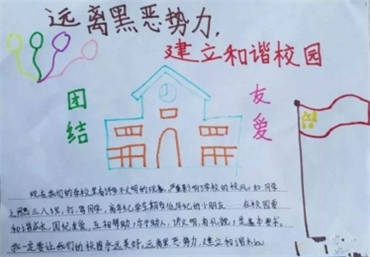 远离黑恶势力,
建立和谐校园
团结
友爱
现在我们的学校里有许多不文明的现象,严重影响了学校的校风,如:同学
之间三人一伙,打、骂同学,高年纪学生欺负低年纪的小朋友
在校园要
和谐成长,团纪友爱、互相帮助
一定要让我们的校园永远美好,远离黑恶势力,建立和谐